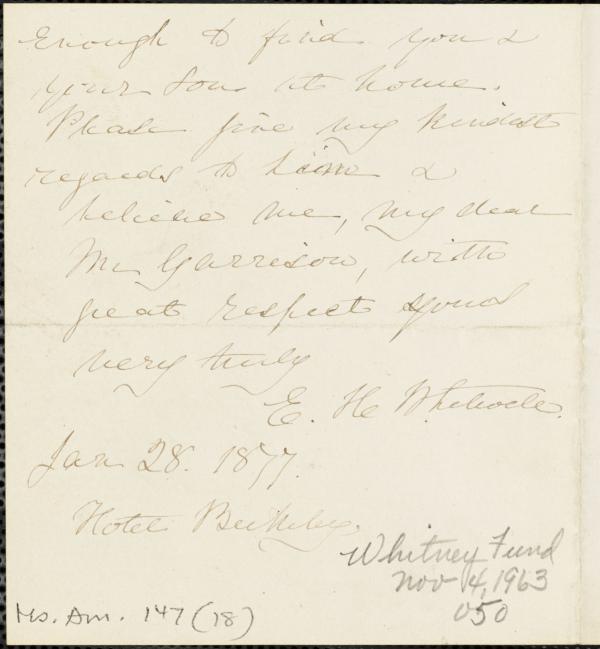 enough to find you &
your son at home.
Please give my kindest
regards to him &
believe me, my dear
Mr Garrison, with
great respect yours
very truly
E. H.
Jan 28. 1877.
Hotel Berkeley.
Whitney Fund
Nov 4, 1963
050
Ms. Am. 147 (18)